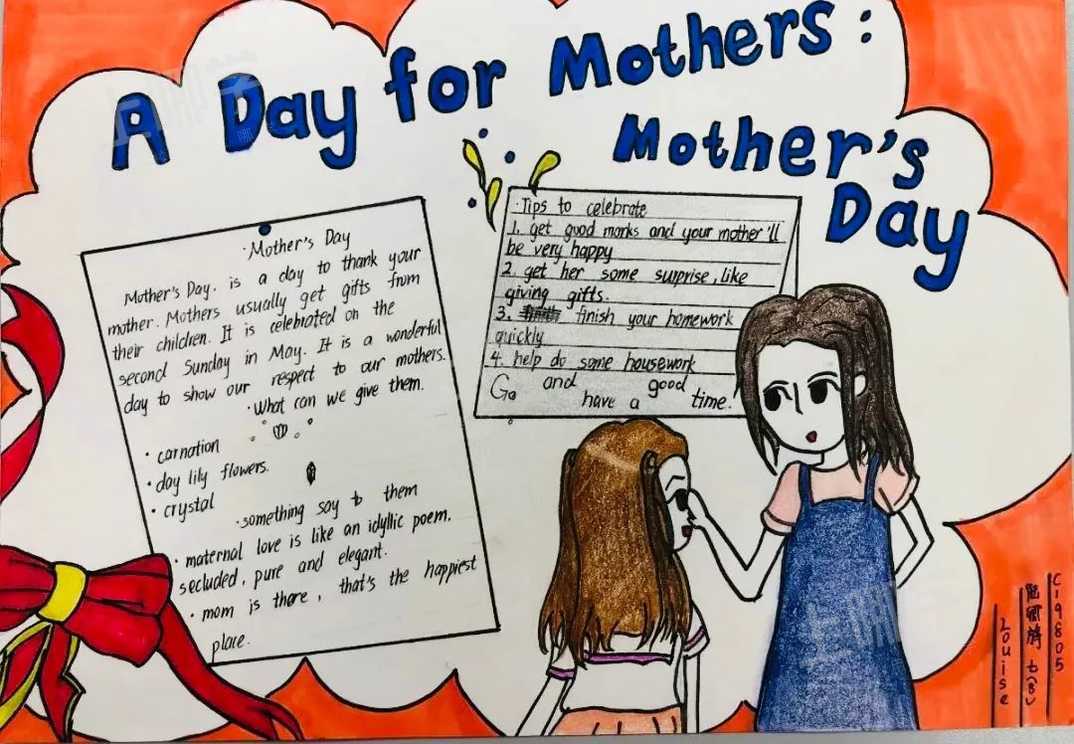 A Day for Mothers:
Mother's
Day
·Mother's Day
Mother's Day. is a day to thank your
mother. Mothers usually get gifts from
their children. It is celebrated on the
second Sunday in May. It is a wonderful
day to show our respect to our mothers.
·What can we give them.
· carnation
· day lily flowers.
· crystal
·something say to them
· maternal love is like an idyllic poem.
secluded, pure and elegant.
· mom is there, that's the happiest
place.
·Tips to celebrate
1. get good marks and your mother'll
be very happy
2. get her some surprise, like
giving gifts.
3. finish your homework
quickly
4. help do some housework
Go and have a good time.
C19805
七(8)
Louise